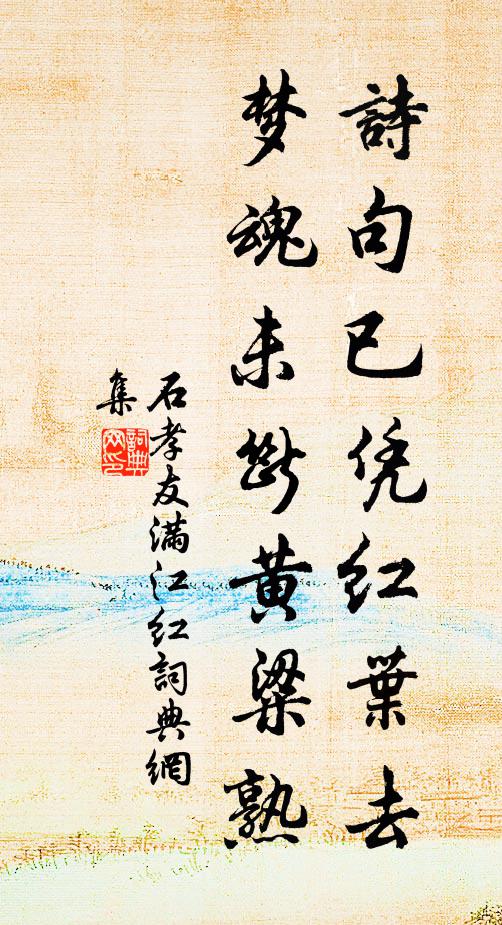 詩句已凭红葉去
梦魂未断黄粱熟
石孝友满江红詞典網
集
詞典網印